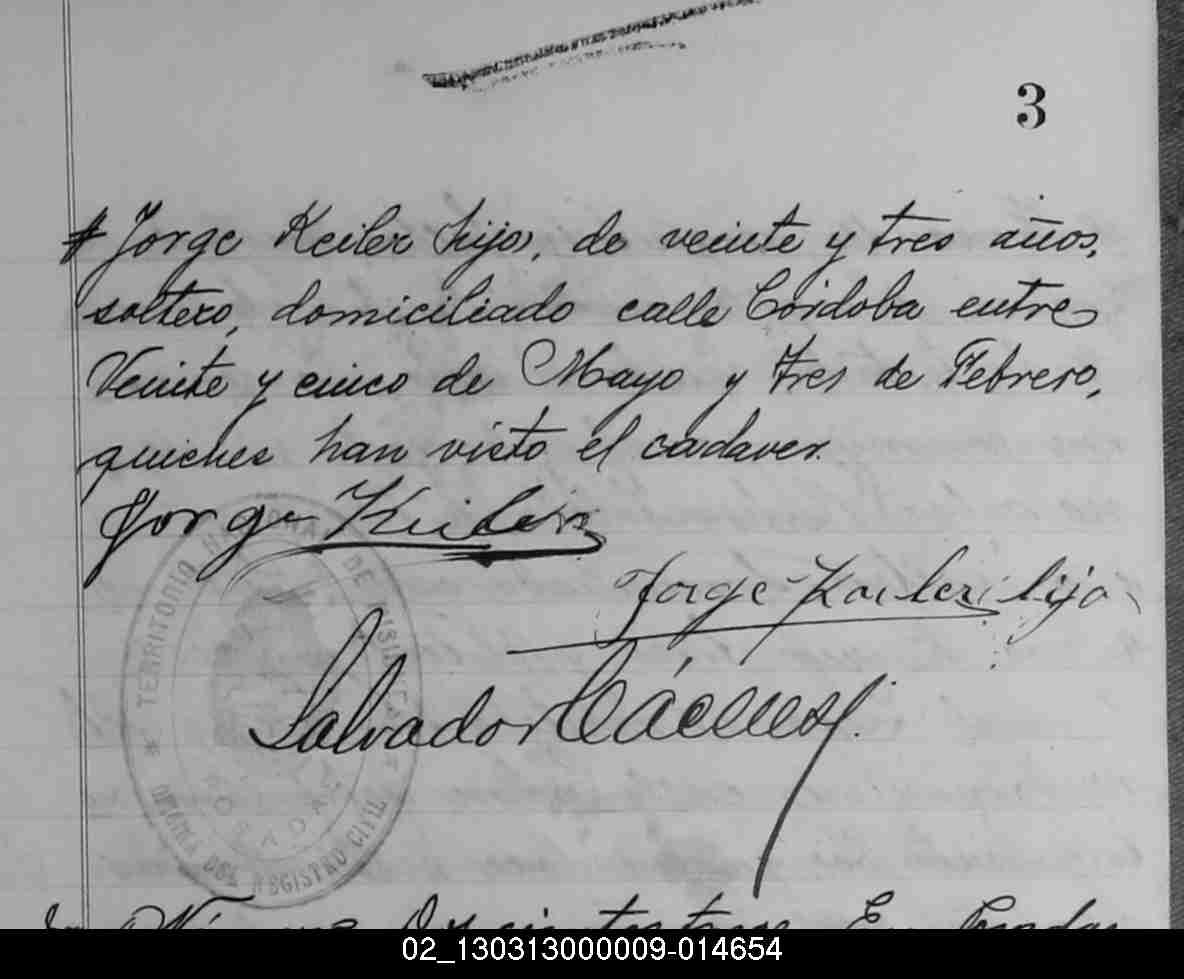 3
Jorge Keiler hijo, de veinte y tres años,
soltero, domiciliado calle Córdoba entre
Veinte y cinco de Mayo y Tres de Febrero,
quienes han visto el cadaver.
Jorge Keiler
Jorge Keiler hijo
Salvador
TERRITORIO NACIONAL DE MISIONES
POSADAS
OFICINA DEL REGISTRO CIVIL
02_130313000009-014654